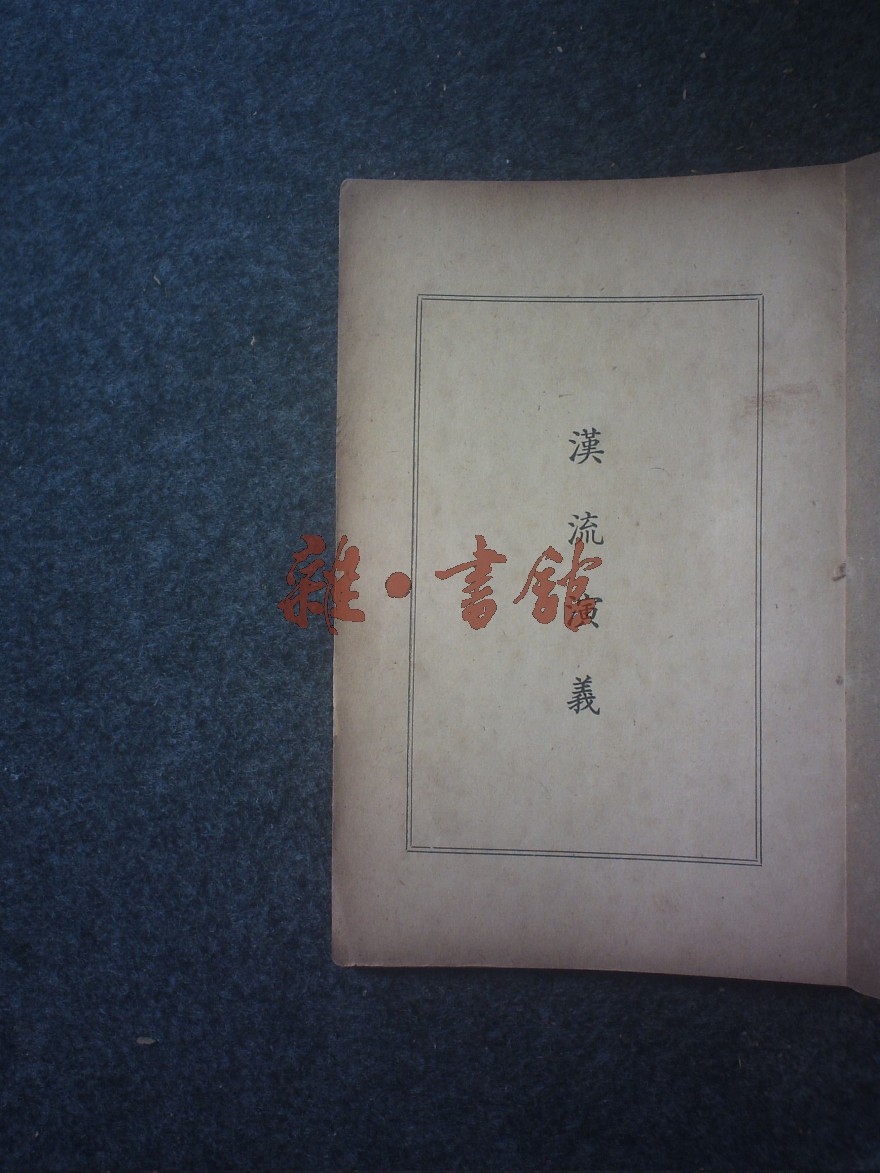 漢流演義
雜·書館